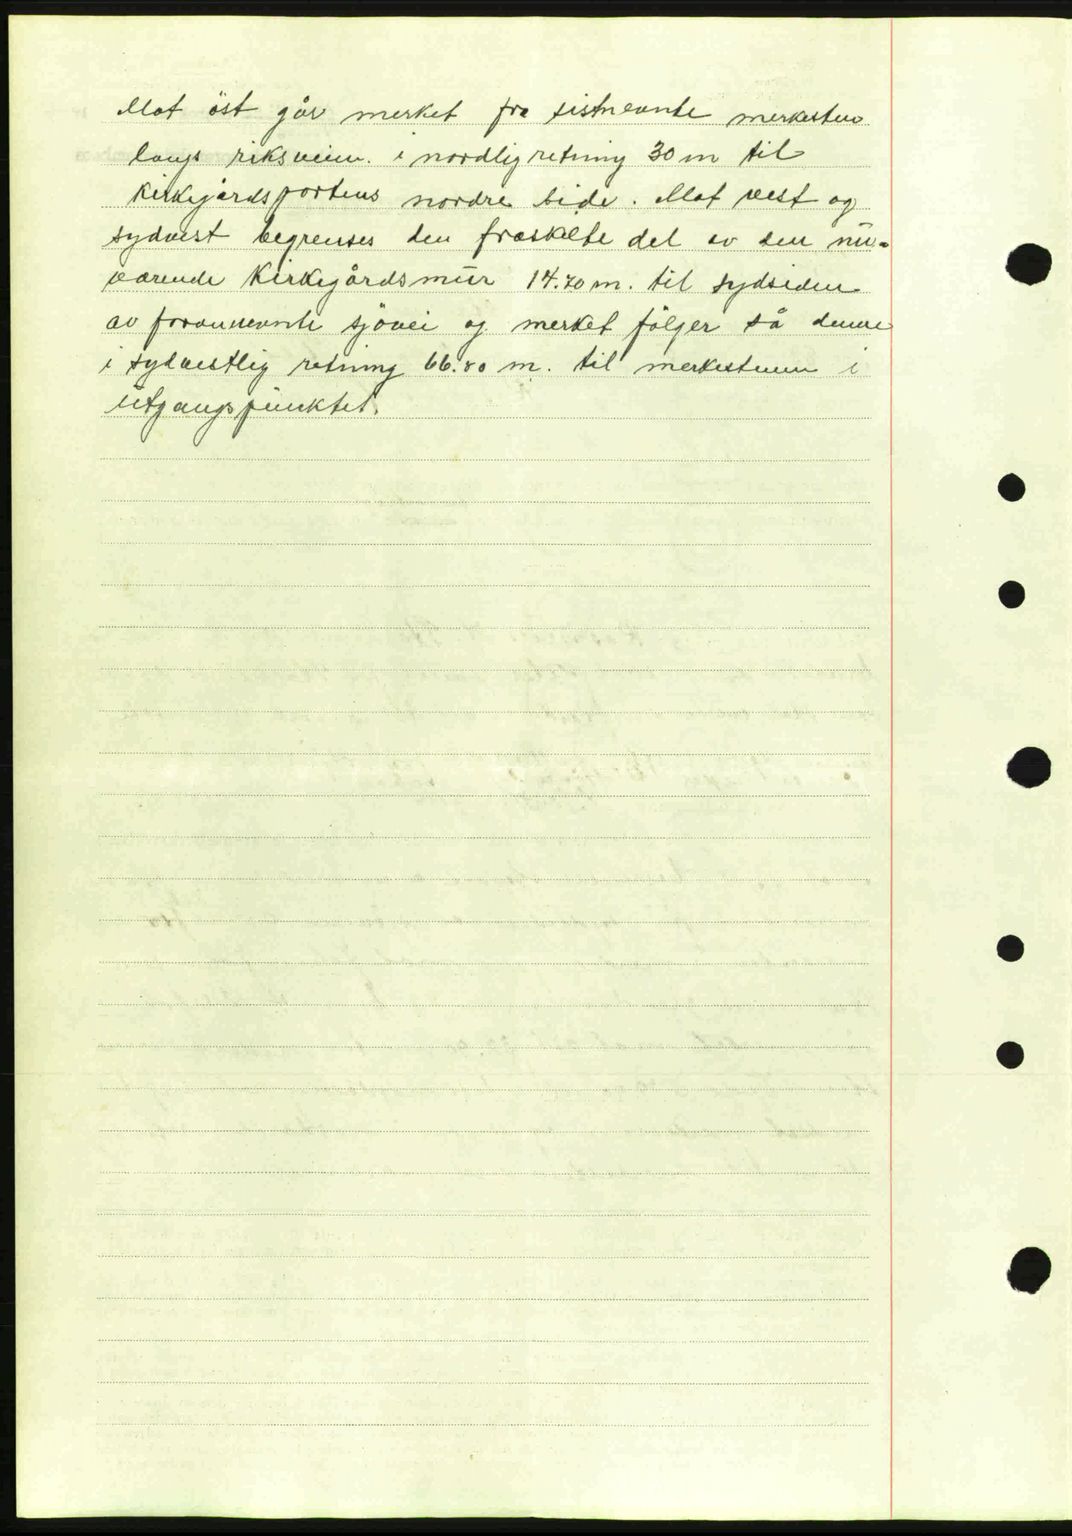 Mot öst går merket fra sistnevnte merkesten
langs riksveien i nordlig retning 30 m til
Kirkegårdsportens nordre side. Mot vest og
sydvest begrenses den fraskilte del av den nu-
værende Kirkegårdsmur 14.70 m. til sydsiden
av forannevnte sjövei og merket fölger så denne
i sydvestlig retning 66.80 m. til merkestenen i
Utgangspunktet.